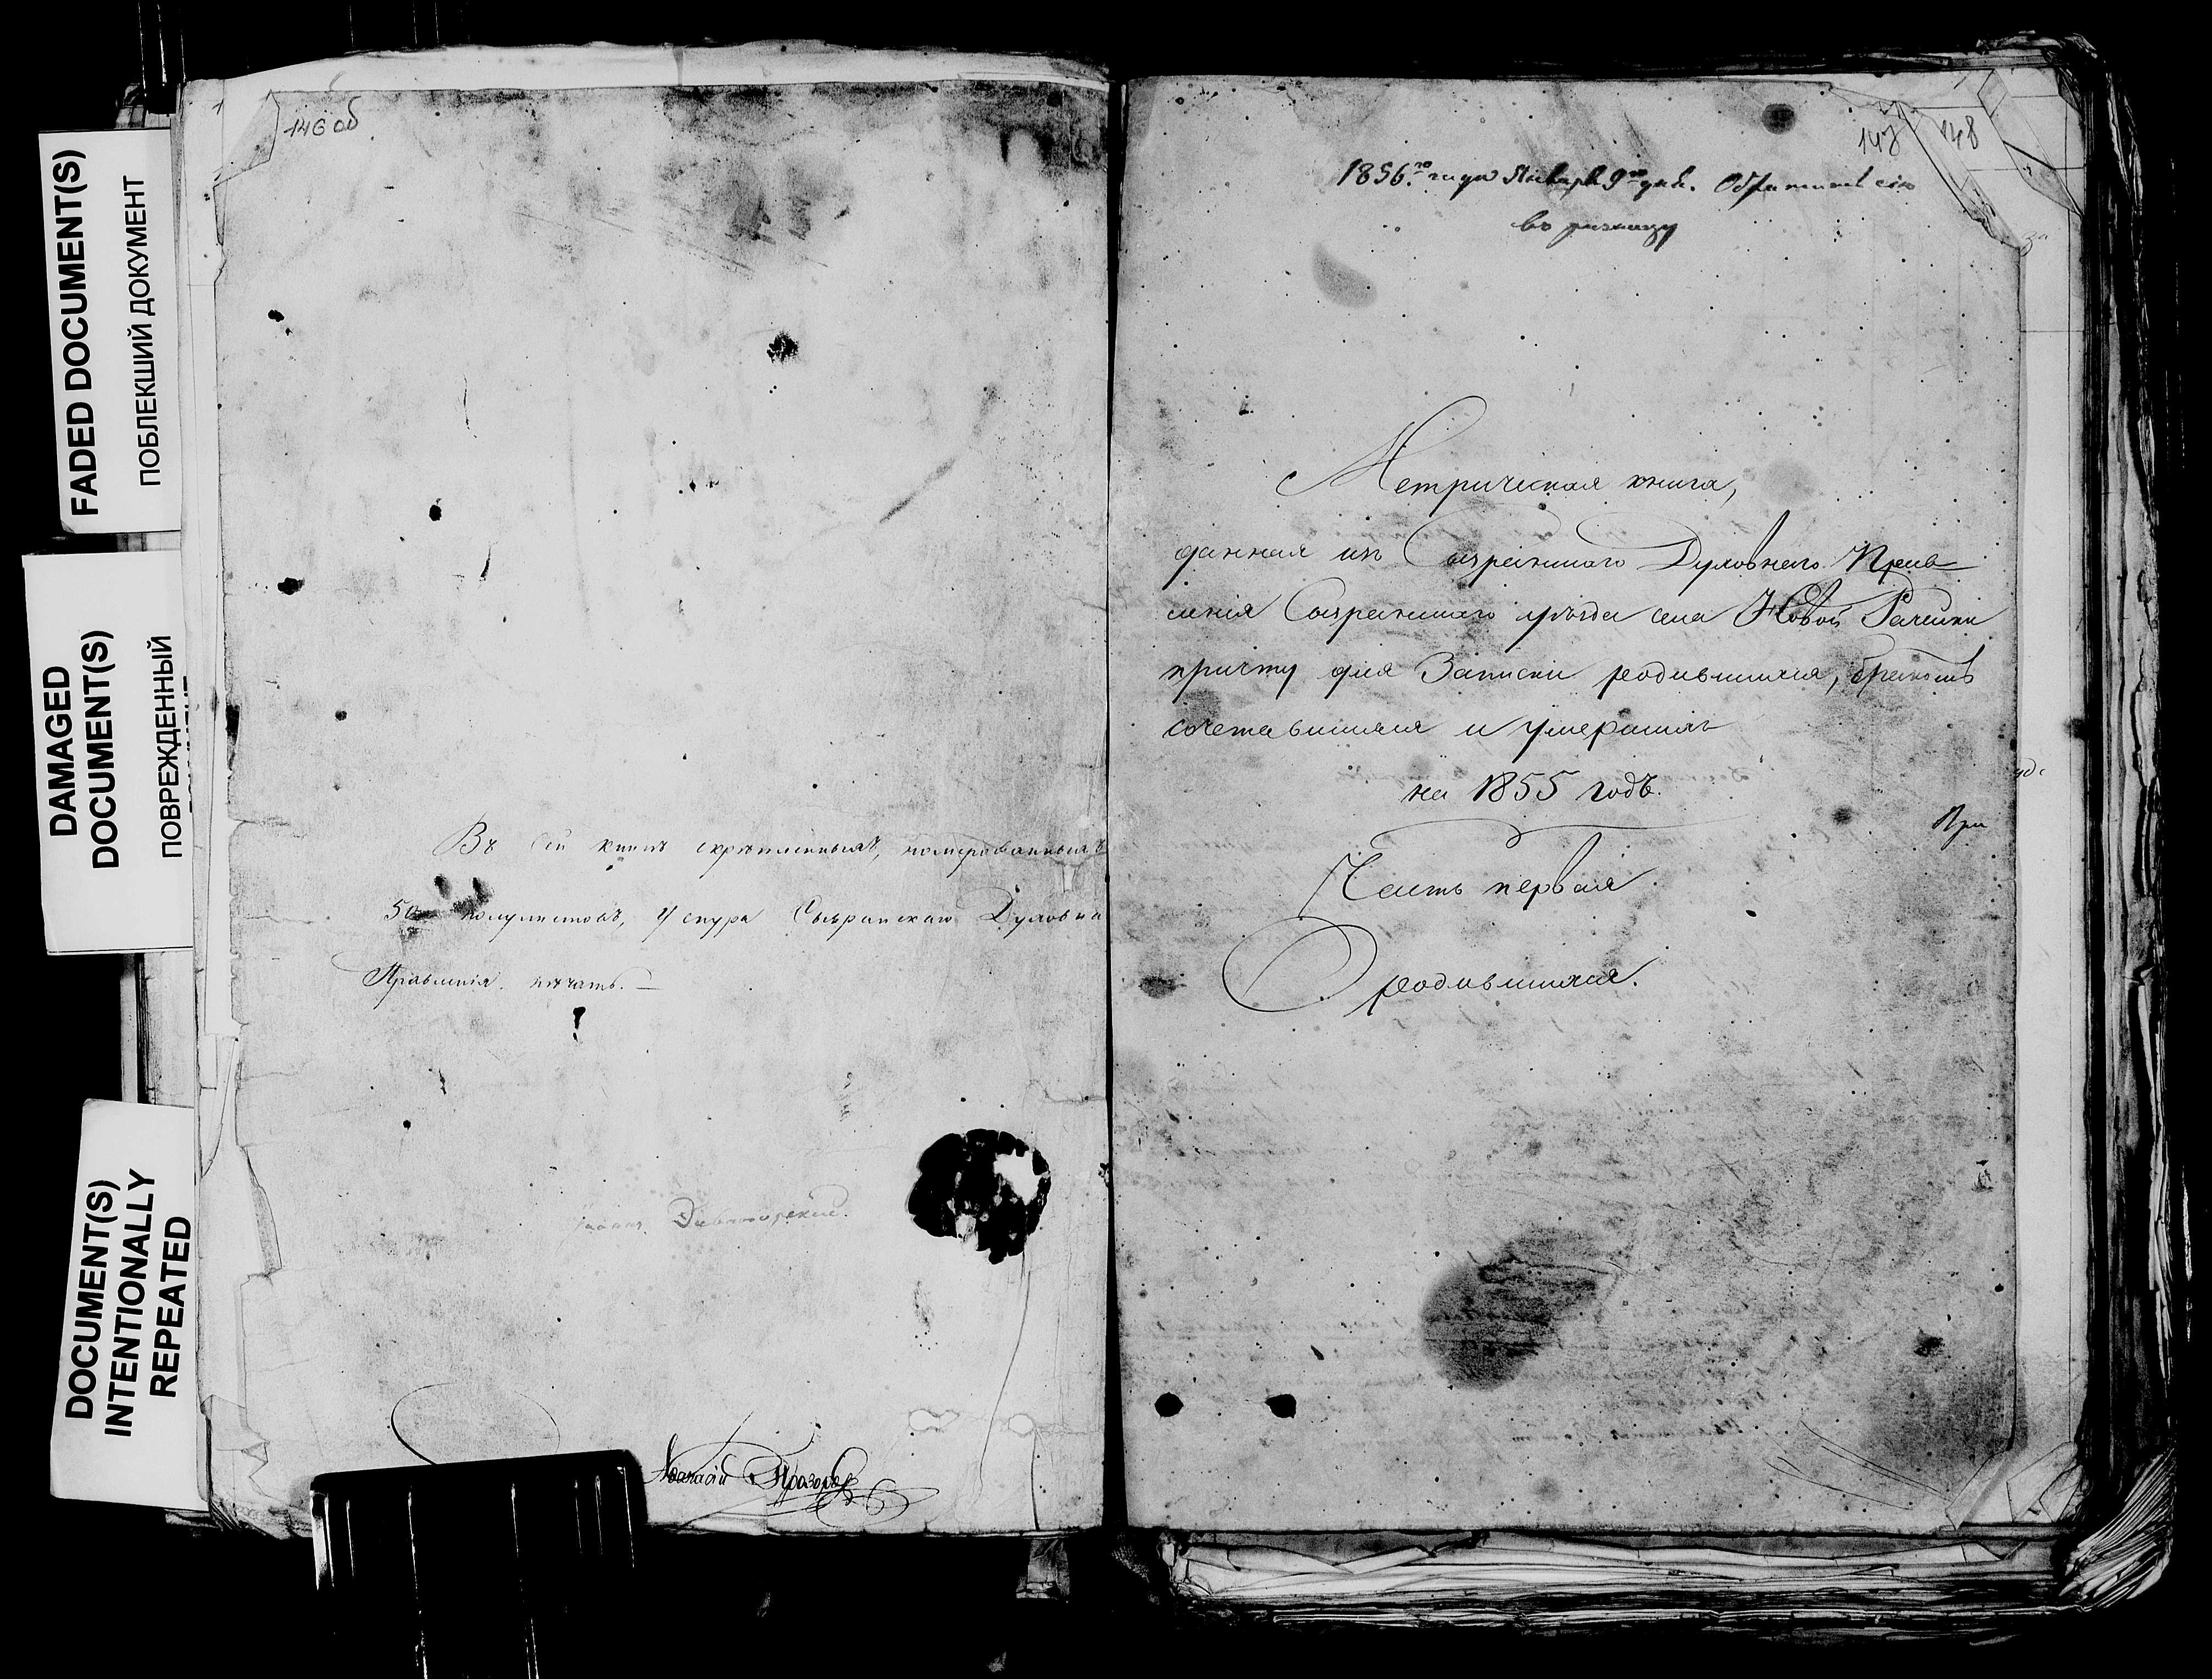 FADED DOCUMENT(S)
ПОБЛЕКШИЙ ДОКУМЕНТ
DAMAGED
DOCUMENT(S)
ПОВРЕЖДЕННЫЙ
DOCUMENT(S)
INTENTIONALLY
REPEATED
146 об
Въ сей книгѣ скрѣпленныхъ, номерованныхъ
50 полулистовъ, у снура Сызранскаго Духовна
Правленія печать. —
Афанасій Прозоровъ
147 148
1856го года Января 9го дня. сію
въ ризницу
Метрическая книга,
данная изъ Сызранскаго Духовнаго Прав
ленія Сызранскаго уѣзда села Новой Рачейки
причту для Записки родившихся, бракомъ
сочетавшихся и умершихъ
на 1855 годъ.
При
Часть первая
О родившихся.